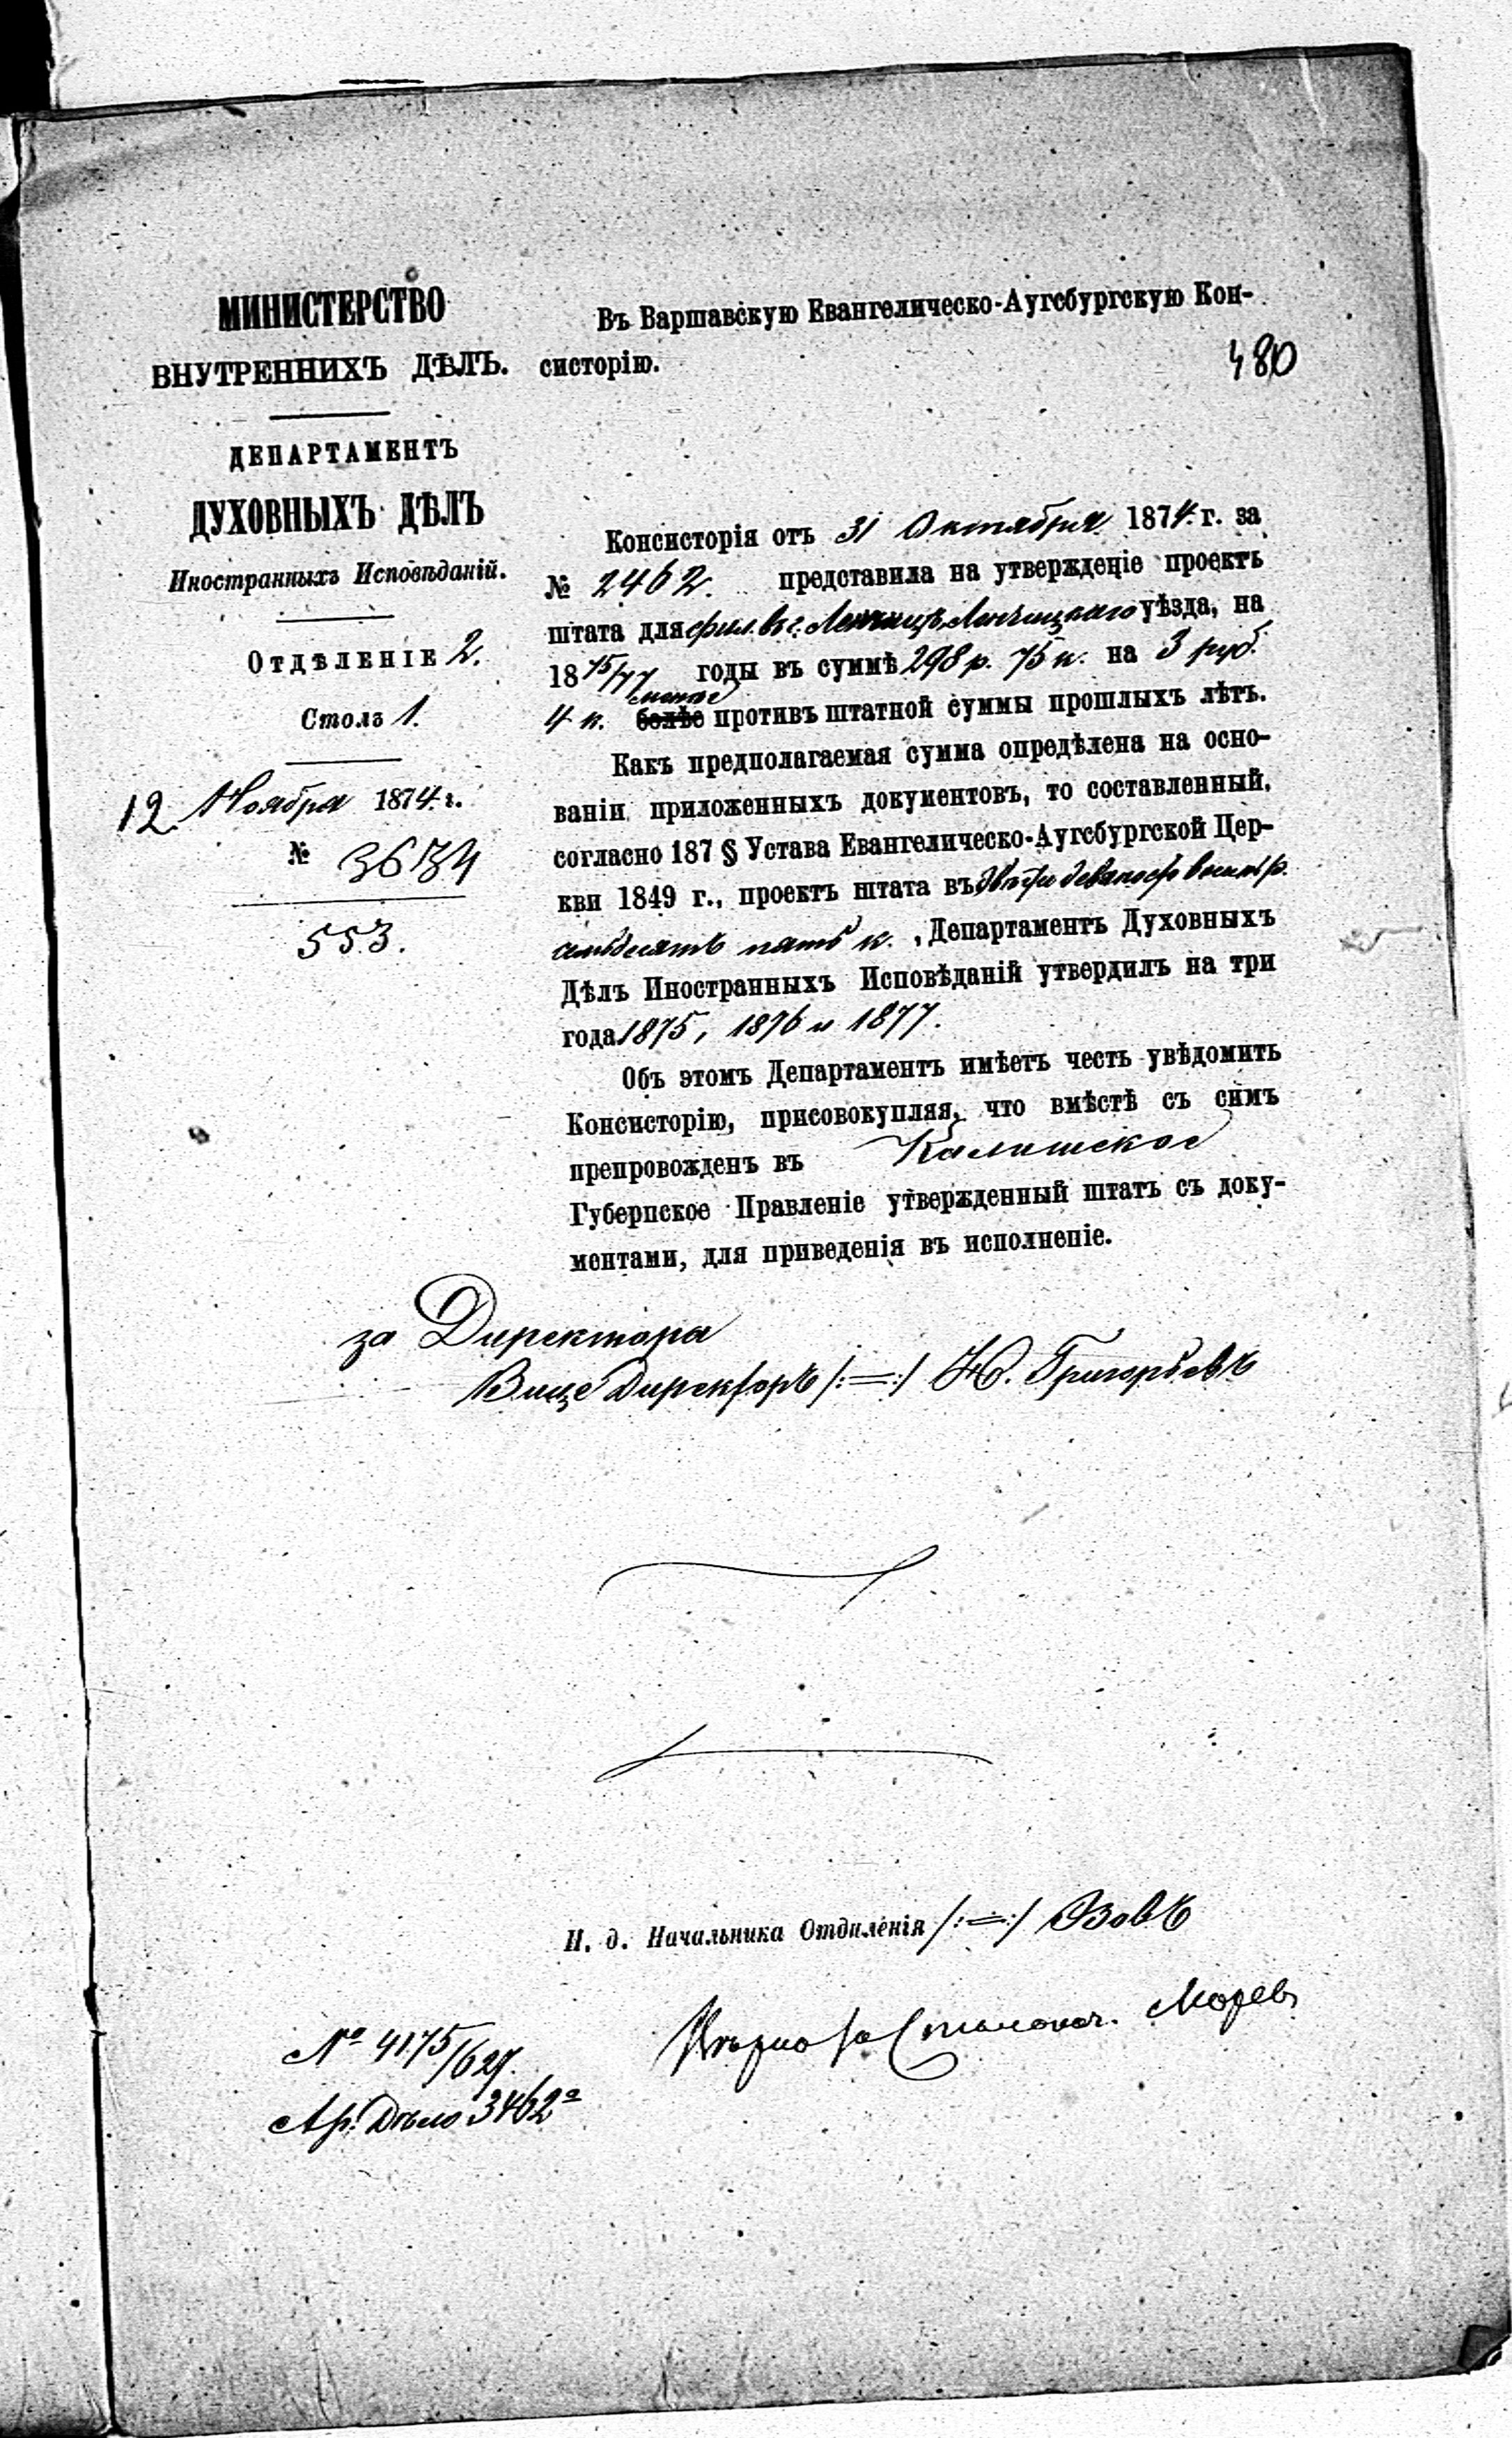 МИНИСТЕРСТВО
ВНУТРЕННИХЪ ДѢЛЪ.
ДЕПАРТАМЕНТЪ
ДУХОВНЫХЪ ДѢЛЪ
Иностранныхъ Исповѣданій.
Отдѣленіе 2.
Столъ 1.
12 Ноября 1874 г.
№ 3634
553.
Въ Варшавскую Евангелическо-Аугсбургскую Кон-
систорію.
480
Консисторія отъ 31 Октября 1874 г. за
№ 2462. представила на утвержденіе проектъ
штата для фил. въ г. Ленчицѣ, Ленчицкаго уѣзда, на
18 75/77 годы въ суммѣ 298 р. 75 к. на 3 руб.
менѣе
4 к. болѣе противъ штатной суммы прошлыхъ лѣтъ.
Какъ предполагаемая сумма опредѣлена на осно-
ваніи приложенныхъ документовъ, то составленный,
согласно 187 § Устава Евангелическо-Аугсбургской Цер-
кви 1849 г., проектъ штата въ двѣсти девяносто восемь р.
семьдесятъ пять к., Департаментъ Духовныхъ
Дѣлъ Иностранныхъ Исповѣданій утвердилъ на три
года 1875, 1876 и 1877.
Объ этомъ Департаментъ имѣетъ честь увѣдомить
Консисторію, присовокупляя, что вмѣстѣ съ симъ
препровожденъ въ Калишское
Губернское Правленіе утвержденный штатъ съ доку-
ментами, для приведенія въ исполненіе.
за Директора
Вице Директоръ /:=:/ Ю. Григорьевъ
И. д. Начальника Отдѣленія /:=:/ Зовъ
Вѣрно за Столонач. Моревъ
№ 4175/627.
Ар. Дѣло 3462а